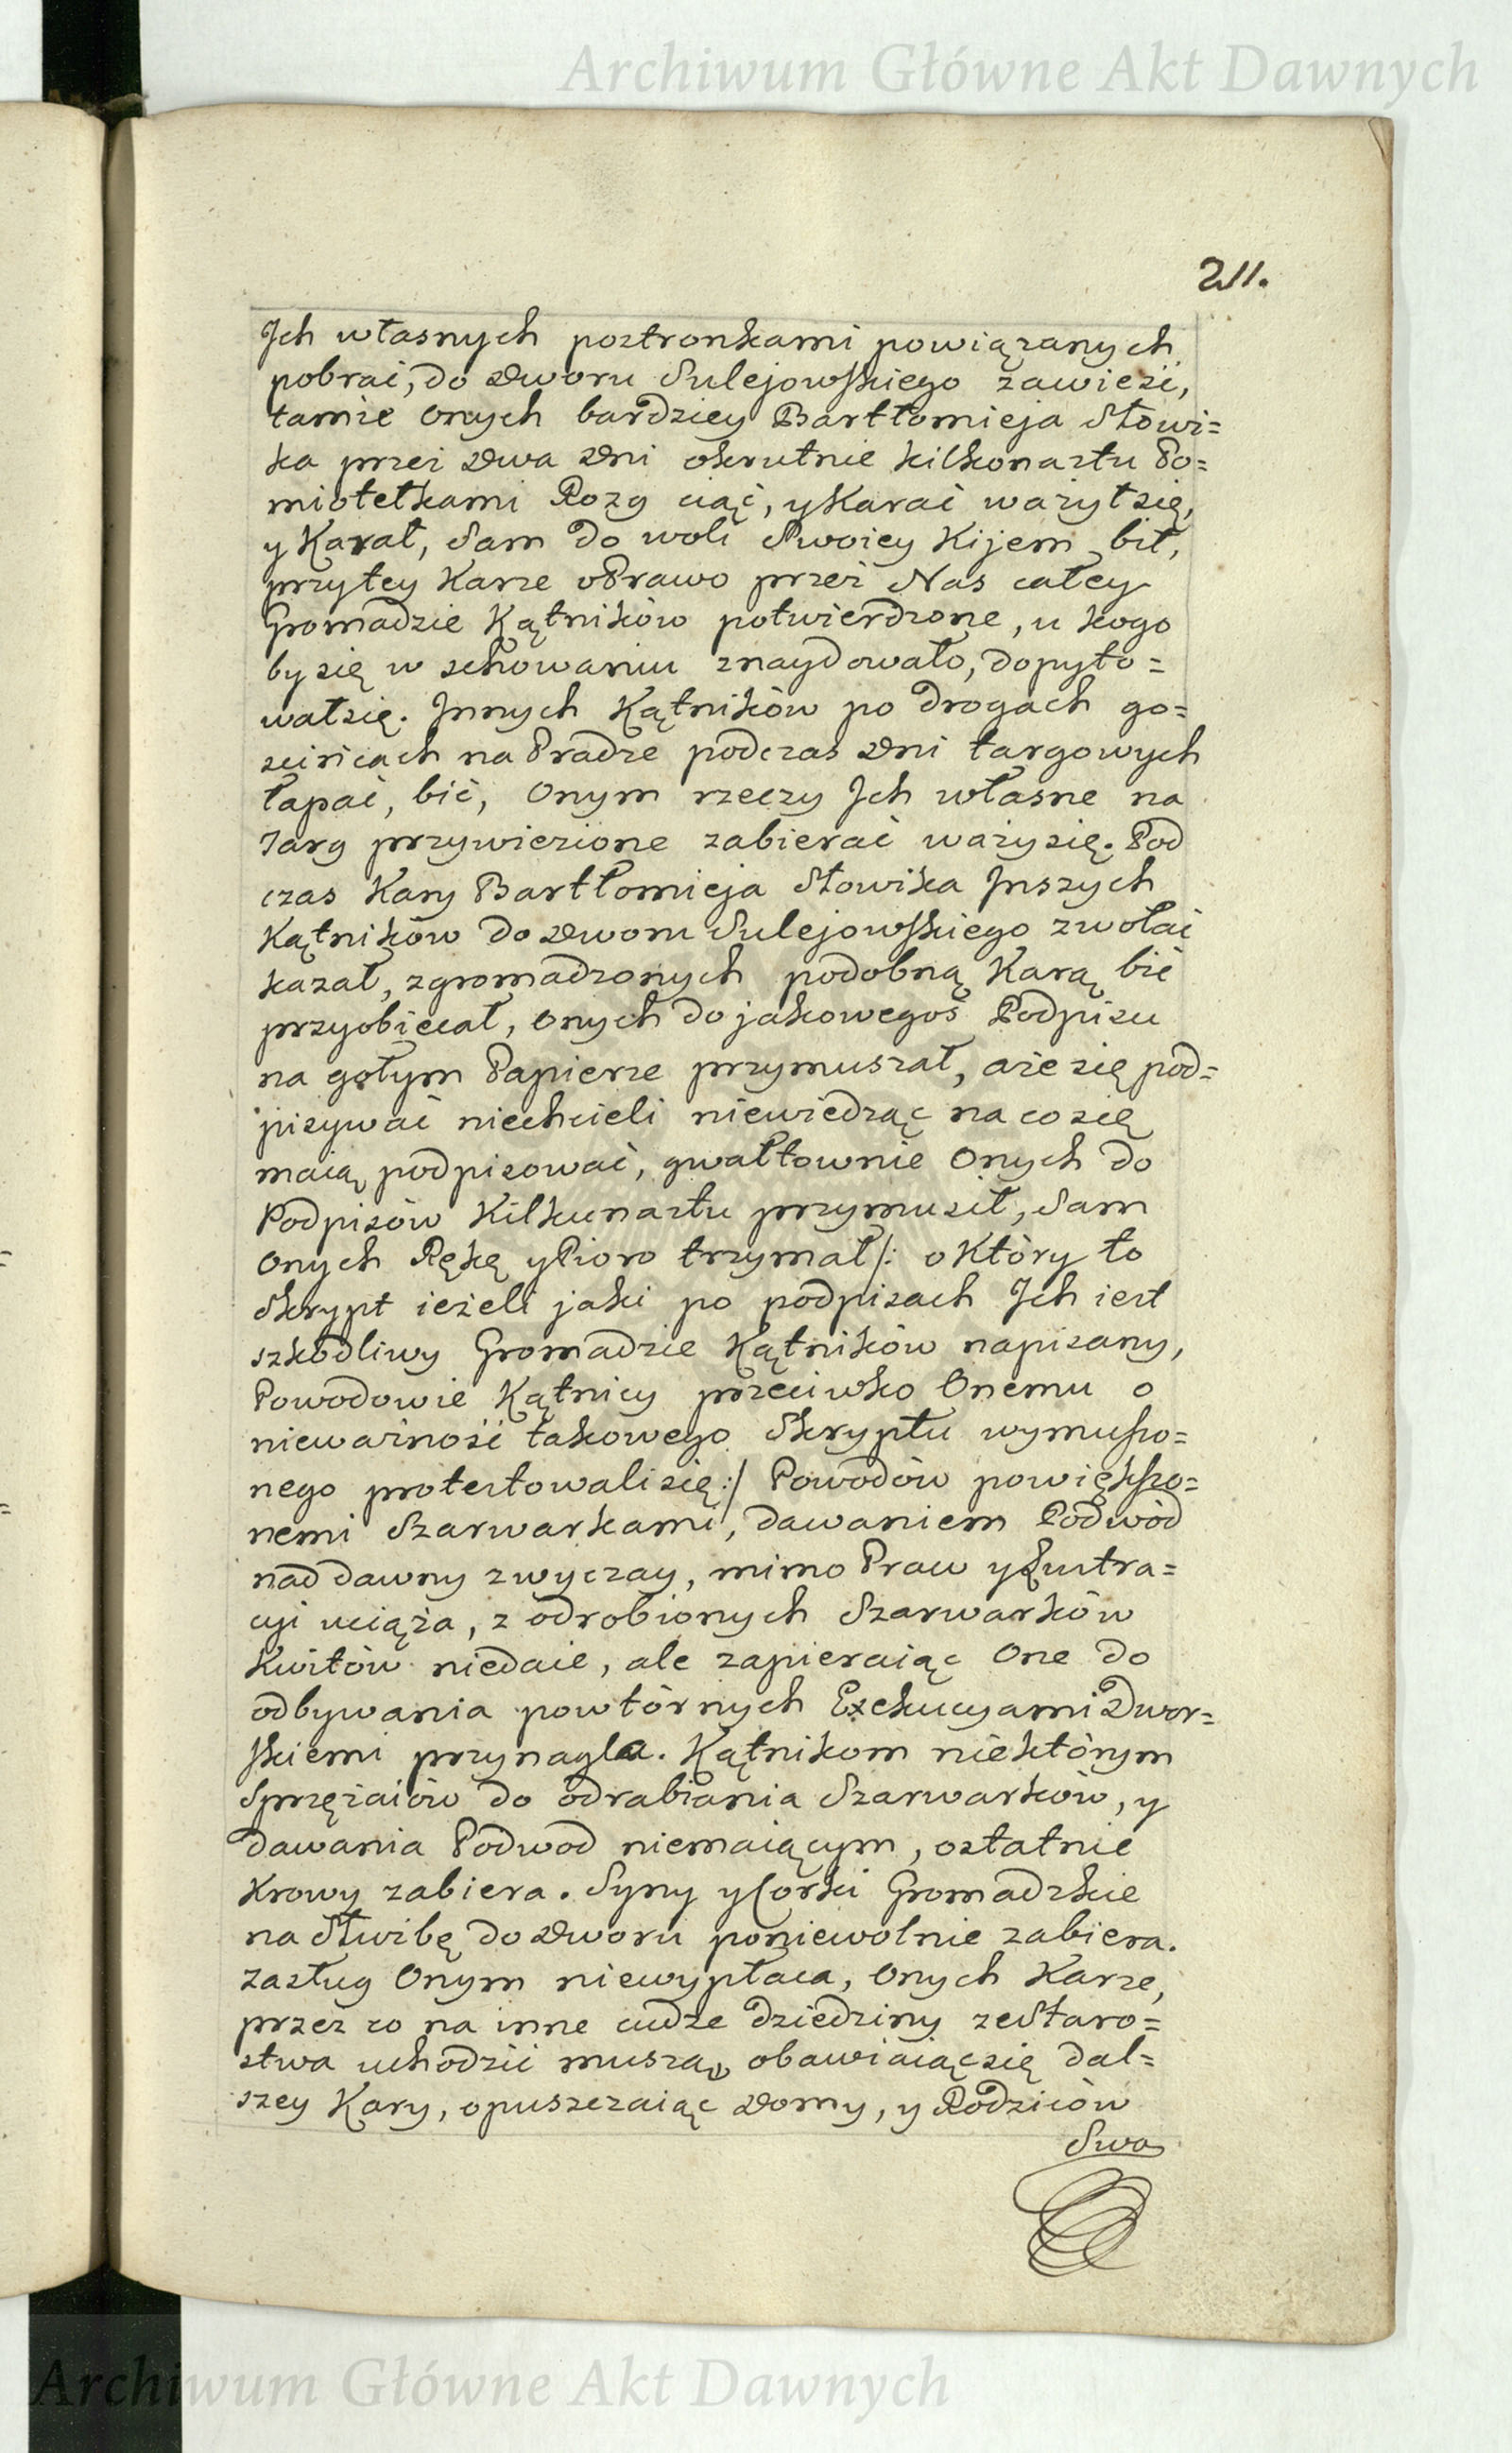 Archiwum Główne Akt Dawnych
211.
Jch własnych postronkami powiązanych
pobrać, do Dworu Sulejowskiego zawieść,
tamże Onych bardziey Bartłomieja Słowi=
ka przez Dwa Dni okrutnie kilkonastu Po=
miotełkami Rozg ciąć, y Karać ważył się,
y Karał, Sam do woli Swoiey Kijem bił,
przytey Karze o Prawo przez Nas całey
Gromadzie Kątników potwierdzone, u kogo
by się w schowaniu znaydowało, dopyto=
wał się. Jnnych Kątników po drogach go=
scińcach na Pradze podczas Dni targowych
łapać, bić, Onym rzeczy Jch własne na
Targ przywiezione zabierać waży się. Pod
czas Kary Bartłomieja Słowika Jnszych
Kątników do Dworu Sulejowskiego zwołać
kazał, zgromadzonych podobną Karą bić
przyobiecał, Onych do jakowegoś Podpisu
na gołym Papierze przymuszał, a że się pod=
pisywać niechcieli niewiedząc na co się
maią podpisować, gwałtownie Onych do
Podpisów Kilkunastu przymusił, Sam
Onych Rękę y Pioro trzymał /: o Który to
Skrypt ieżeli jaki po podpisach Jch iest
szkodliwy Gromadzie Kątników napisany,
Powodowie Kątnicy przeciwko Onemu o
nieważność takowego Skryptu wymuszo=
nego protestowali się :/ Powodów powiększo=
nemi Szarwarkami, dawaniem Podwód
nad dawny zwyczay, mimo Praw y Lustra=
cyi uciąża, z odrobionych Szarwarków
Kwitów niedaie, ale zapieraiąc One do
odbywania powtórnych Exekucyami Dwor=
skiemi przynagla. Kątnikom niektórym
Sprzężaiów do odrabiania Szarwarków, y
dawania Podwod niemaiącym, ostatnie
Krowy zabiera. Syny y Corki Gromadzkie
na Służbę do Dworu poniewolnie zabiera.
zasług Onym niewypłaca, Onych Karze,
przez co na inne cudze dziedziny ze Staro=
stwa uchodzić muszą, obawiaiąc się dal=
szey Kary, opuszczaiąc Domy, y Rodziców
Swo
Archiwum Główne Akt Dawnych